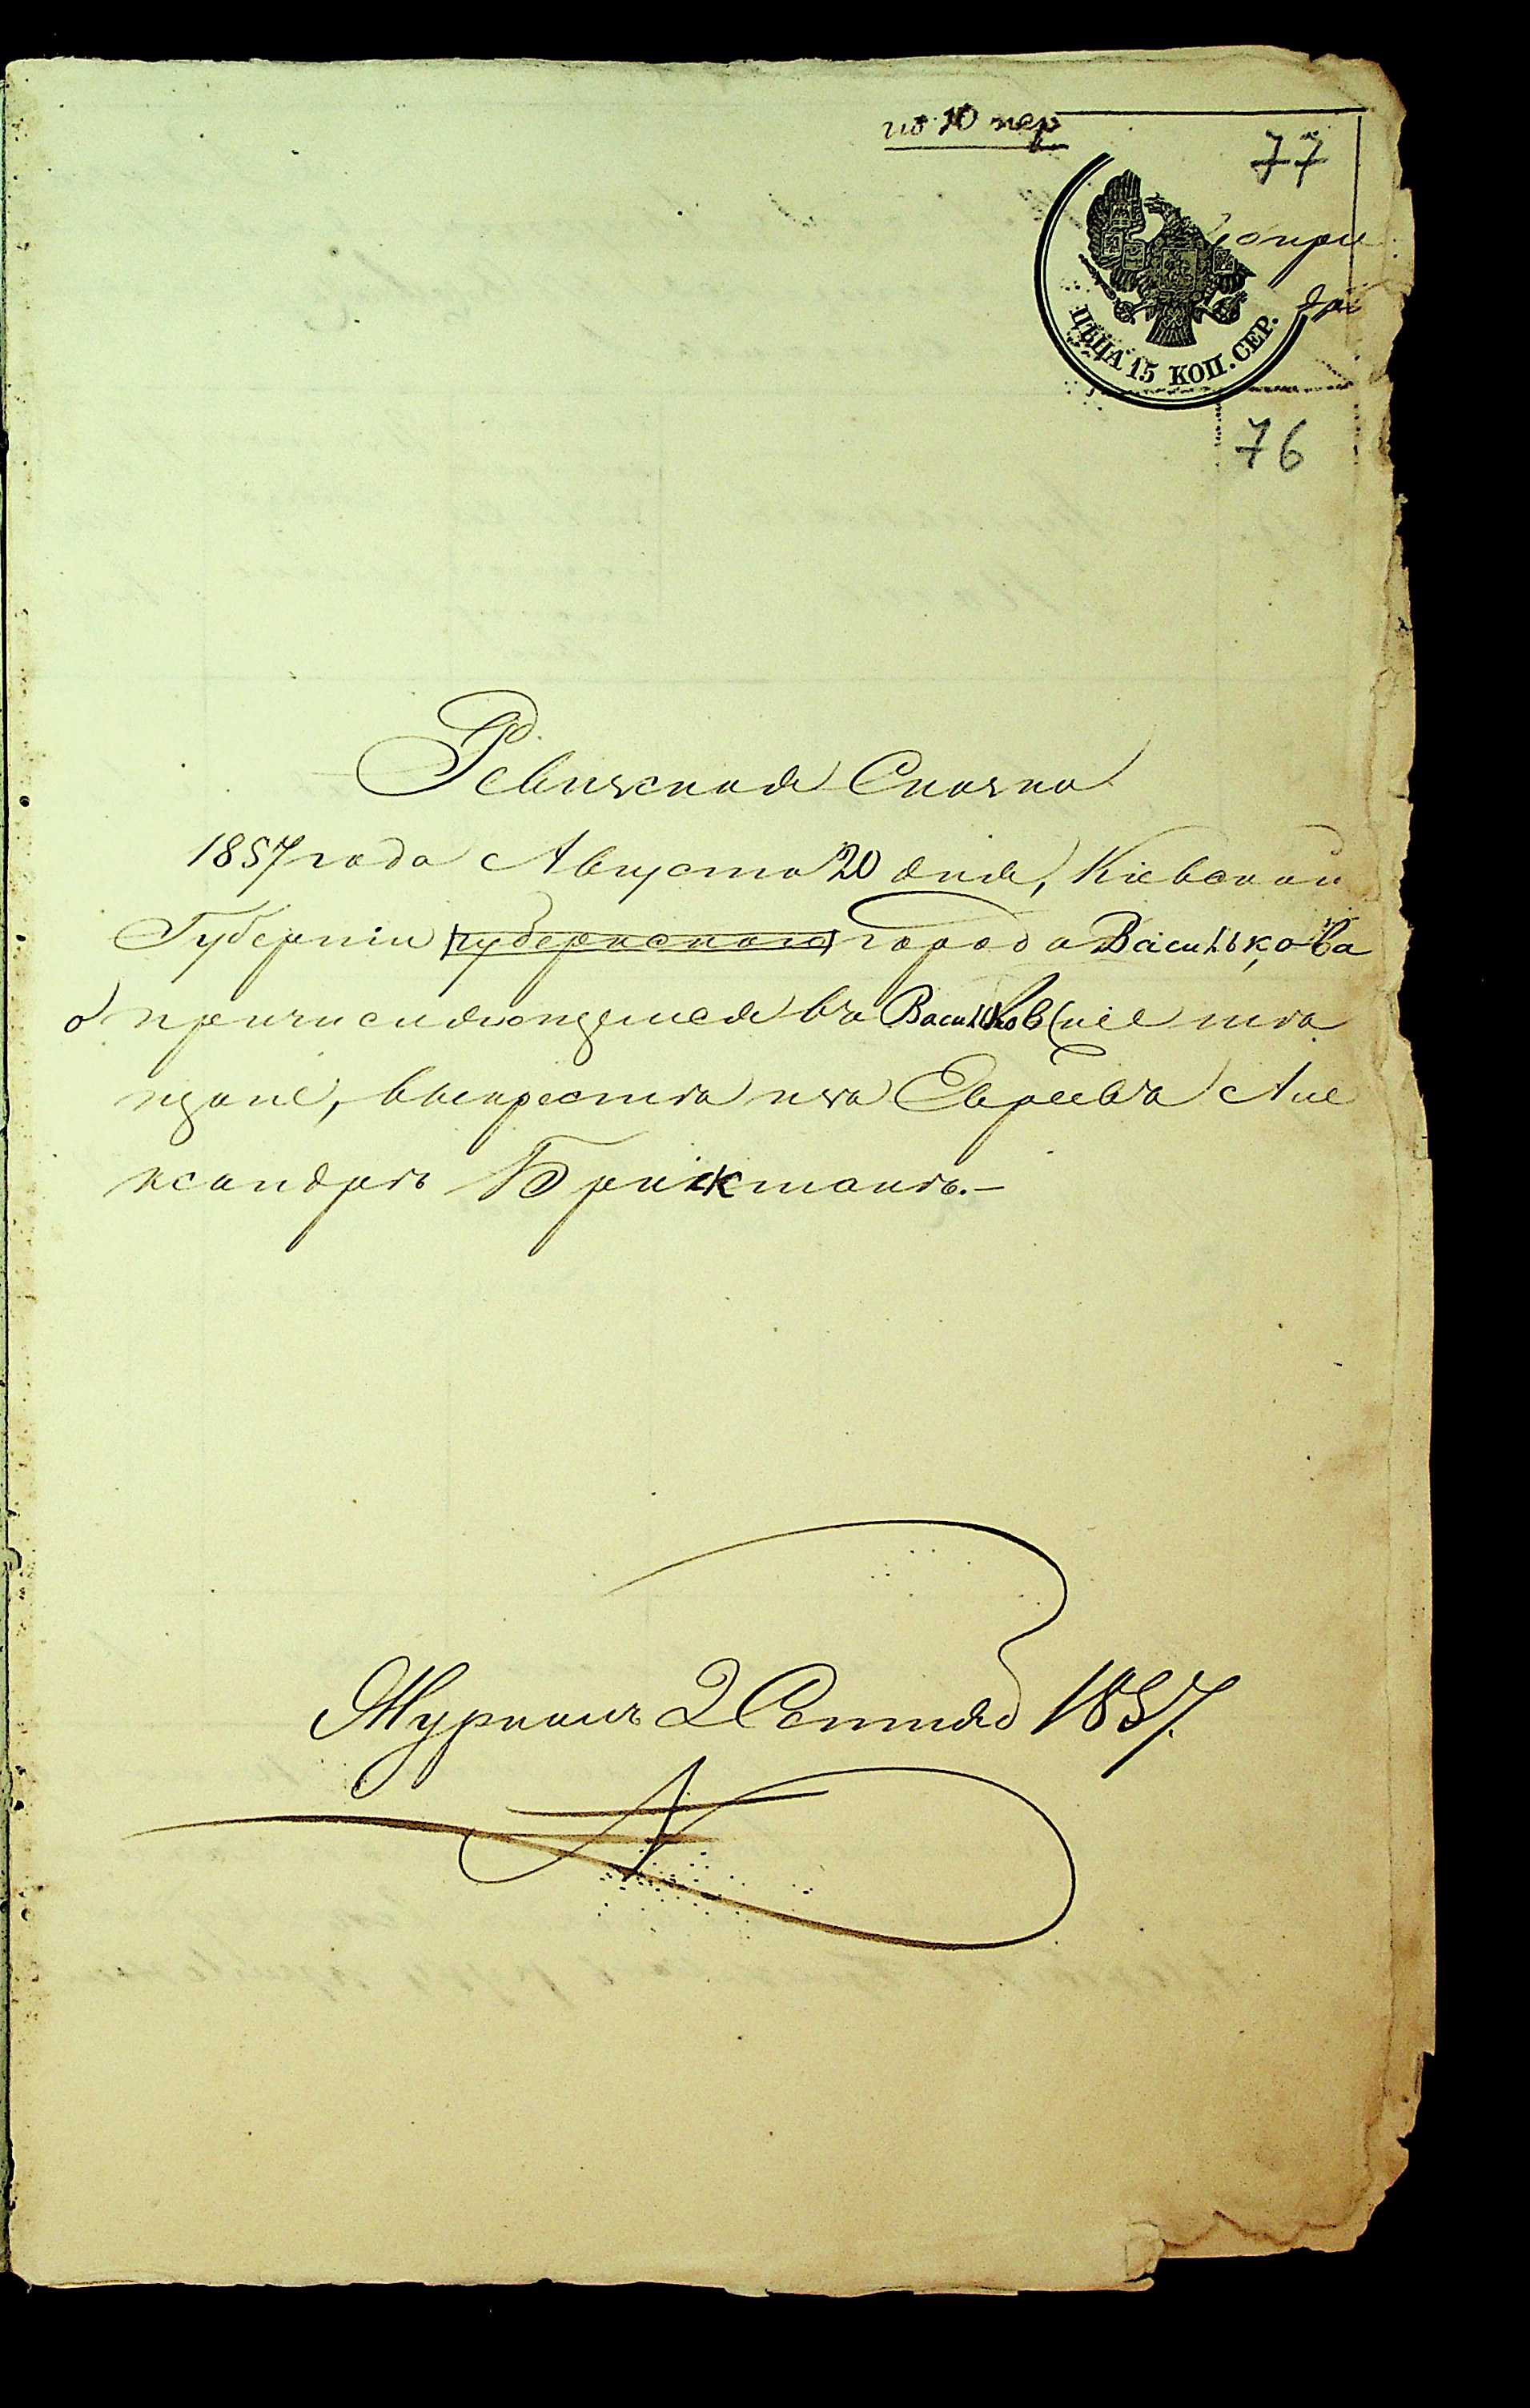 по 10 пер
77
ЦѢНА 15 КОП. СЕР.
76
Ревизская Сказка
1857 года Августа 20 дня, Кіевской
Губерніи губернскаго города Василькова
о причисляющемся въ Васильковскіе мѣ
щане, выкрестѣ изъ Евреевъ Але
ксандрѣ Брикманѣ.-
Журналъ 2 Сентяб 1857.